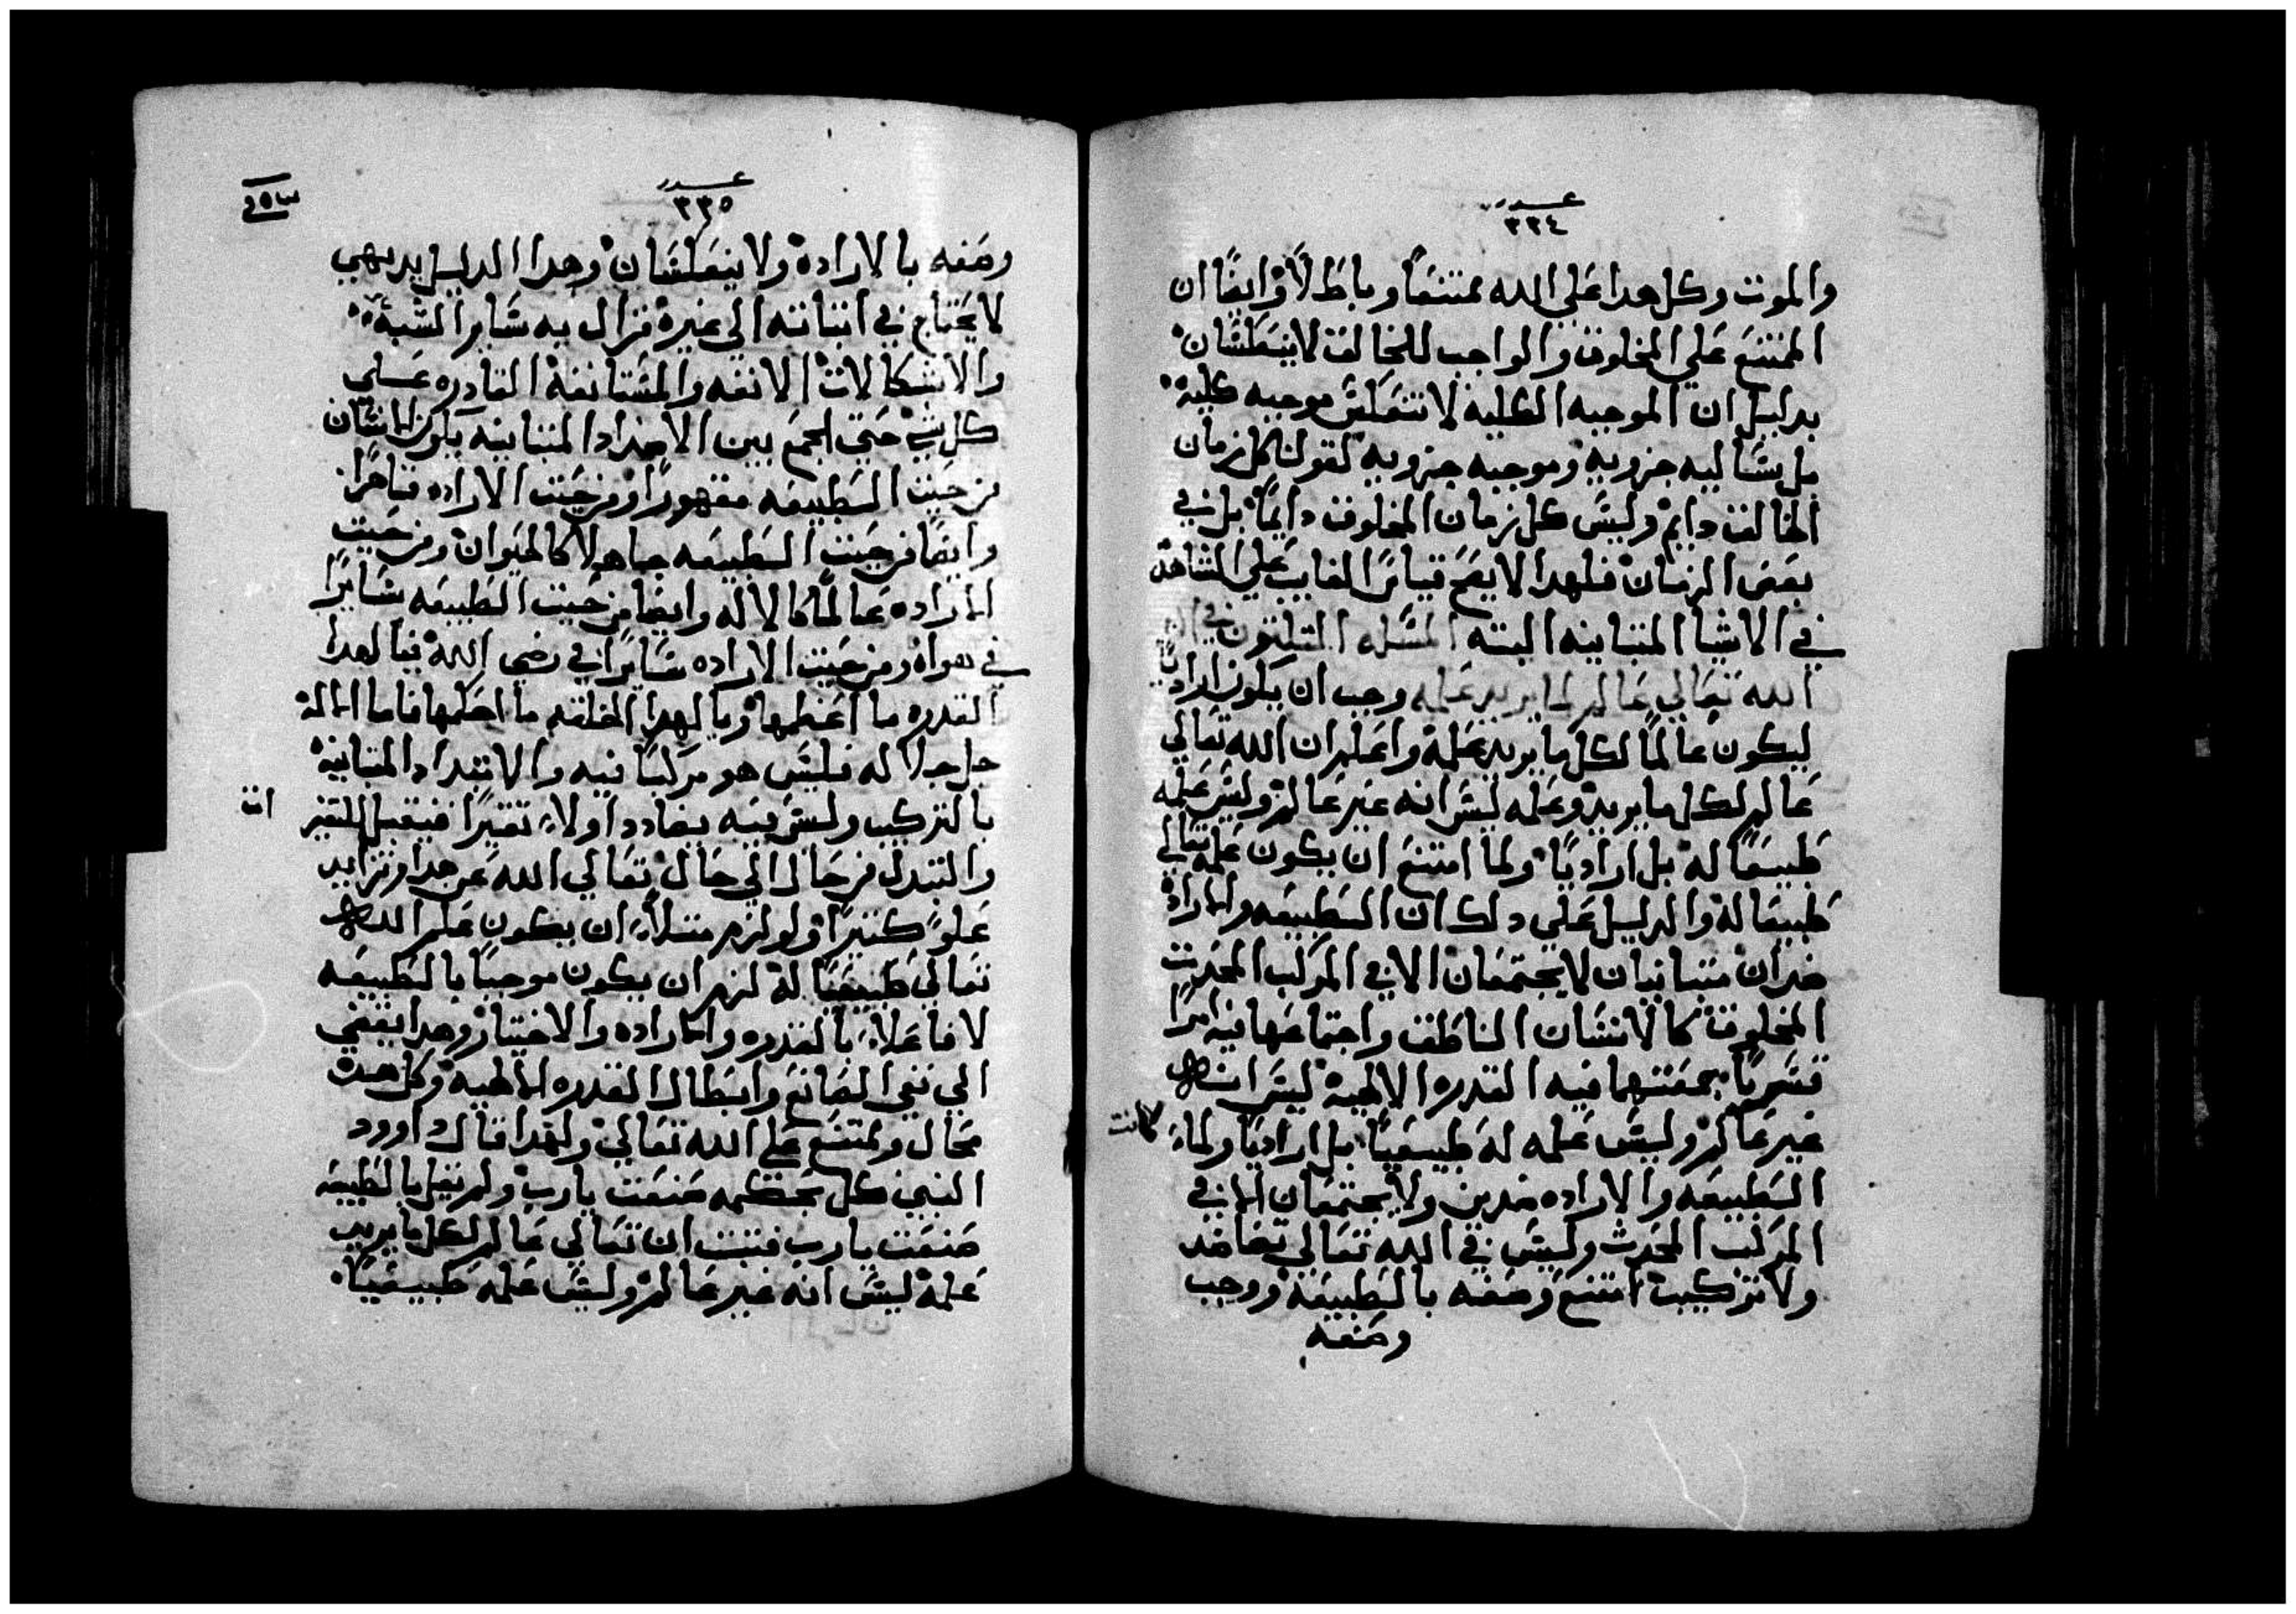 عدد
٣٣٤
والموت وكل هدا علي الله ممتنعاً وباطلاً وايضاً ان
الممتنع علي المخلوق والواجب للخالق لا ينعكسان
بدليل ان الموجبه الكليه لا تنعكس موجبه كلية
بل سالبه جزويه وموجبه جزويه لقولنا كل زمان
الخالق دايم وليس كل زمان المخلوق دايماً بل في
بعض الزمان فلهدا لا يصح قياس الغايب علي الشاهد
في الاشيا المتباينه البته المسله التلتون في ان
الله تعالي عالم لما يريد علمه وجب ان يكون ارادياً
ليكون عالماً لكل ما يريد علمة واعلم ان الله تعالي
عالم لكل ما يريد وعلمه ليس انه غير عالم وليس علمه
طبيعاً له بل ارادياً ولما امتنع ان يكون علمه تعالي
طبيعا له والدليل علي دلك ان الطبيعه والاراده
ضدان متباينان لا يجتمعان الا في المركب المحدت
المخلوق كالانسان الناطق واجتماعهما فيه امراً
قسرياً بجمعتهما فيه القدره الالهية ليس انه
غير عالم وليس علمه له طبيعياً بل ارادياً ولما
كانت
الطبيعه والاراده ضدين ولا يجتمعان الا في
المركب المحدث وليس في الله تعالي تضادد
ولا تركيب امتنع وصفه بالطبيعة ووجب
وصفه
عدد
٣٣٥
وصفه بالارادة ولا ينعكسان وهدا الدليل بديهي
لا يحتاج في اتباته الي غيرة فزال به ساير الشبه
والاشكالات الانفه والمستانفة القادره علي
كل شي حتي الجمع بين الاضداد المتباينه يكون الانسان
من حيت الطبيعه مقهوراً ومن حيت الاراده قاهراً
وايضاً من حيت الطبيعه جاهلاً كالحيوان ومن حيت
الاراده عالماً كالاله وايضا من حيت الطبيعه سايراً
في هواه ومن حيت الاراده سايراً في رضي الله فيا لهدا
القدره ما اعظمها ويا لهدا الخلقه ما احكمها فاما الاله
جل جلاله فليس هو مركباً فيه والاتبداد المتباينة
بالتركيب وليس فيه تضادد اولا تغيراً فيقبل التغير
والتبدل من حال الي حال تعالي الله عن هدا وتزايد
علوً كتيراً ولو لزم متلاً ان يكون علم الله
تعالي طبيعياً لة لزم ان يكون موجباً بالطبيعه
لا فاعلاً بالقدره والاراده والاختيار وهدا يفضي
الي نفي الصانع وابطال القدره الالهية وكل هده
محال وممتنع علي الله تعالي ولهدا قال داوود
النبي كل بحكمه صنعت يا رب ولم يقل بالطبيعه
صنعت يا رب فتبت ان تعالي عالم لكل ما يريد
علمة ليس انه غير عالم وليس علمه طبيعياً